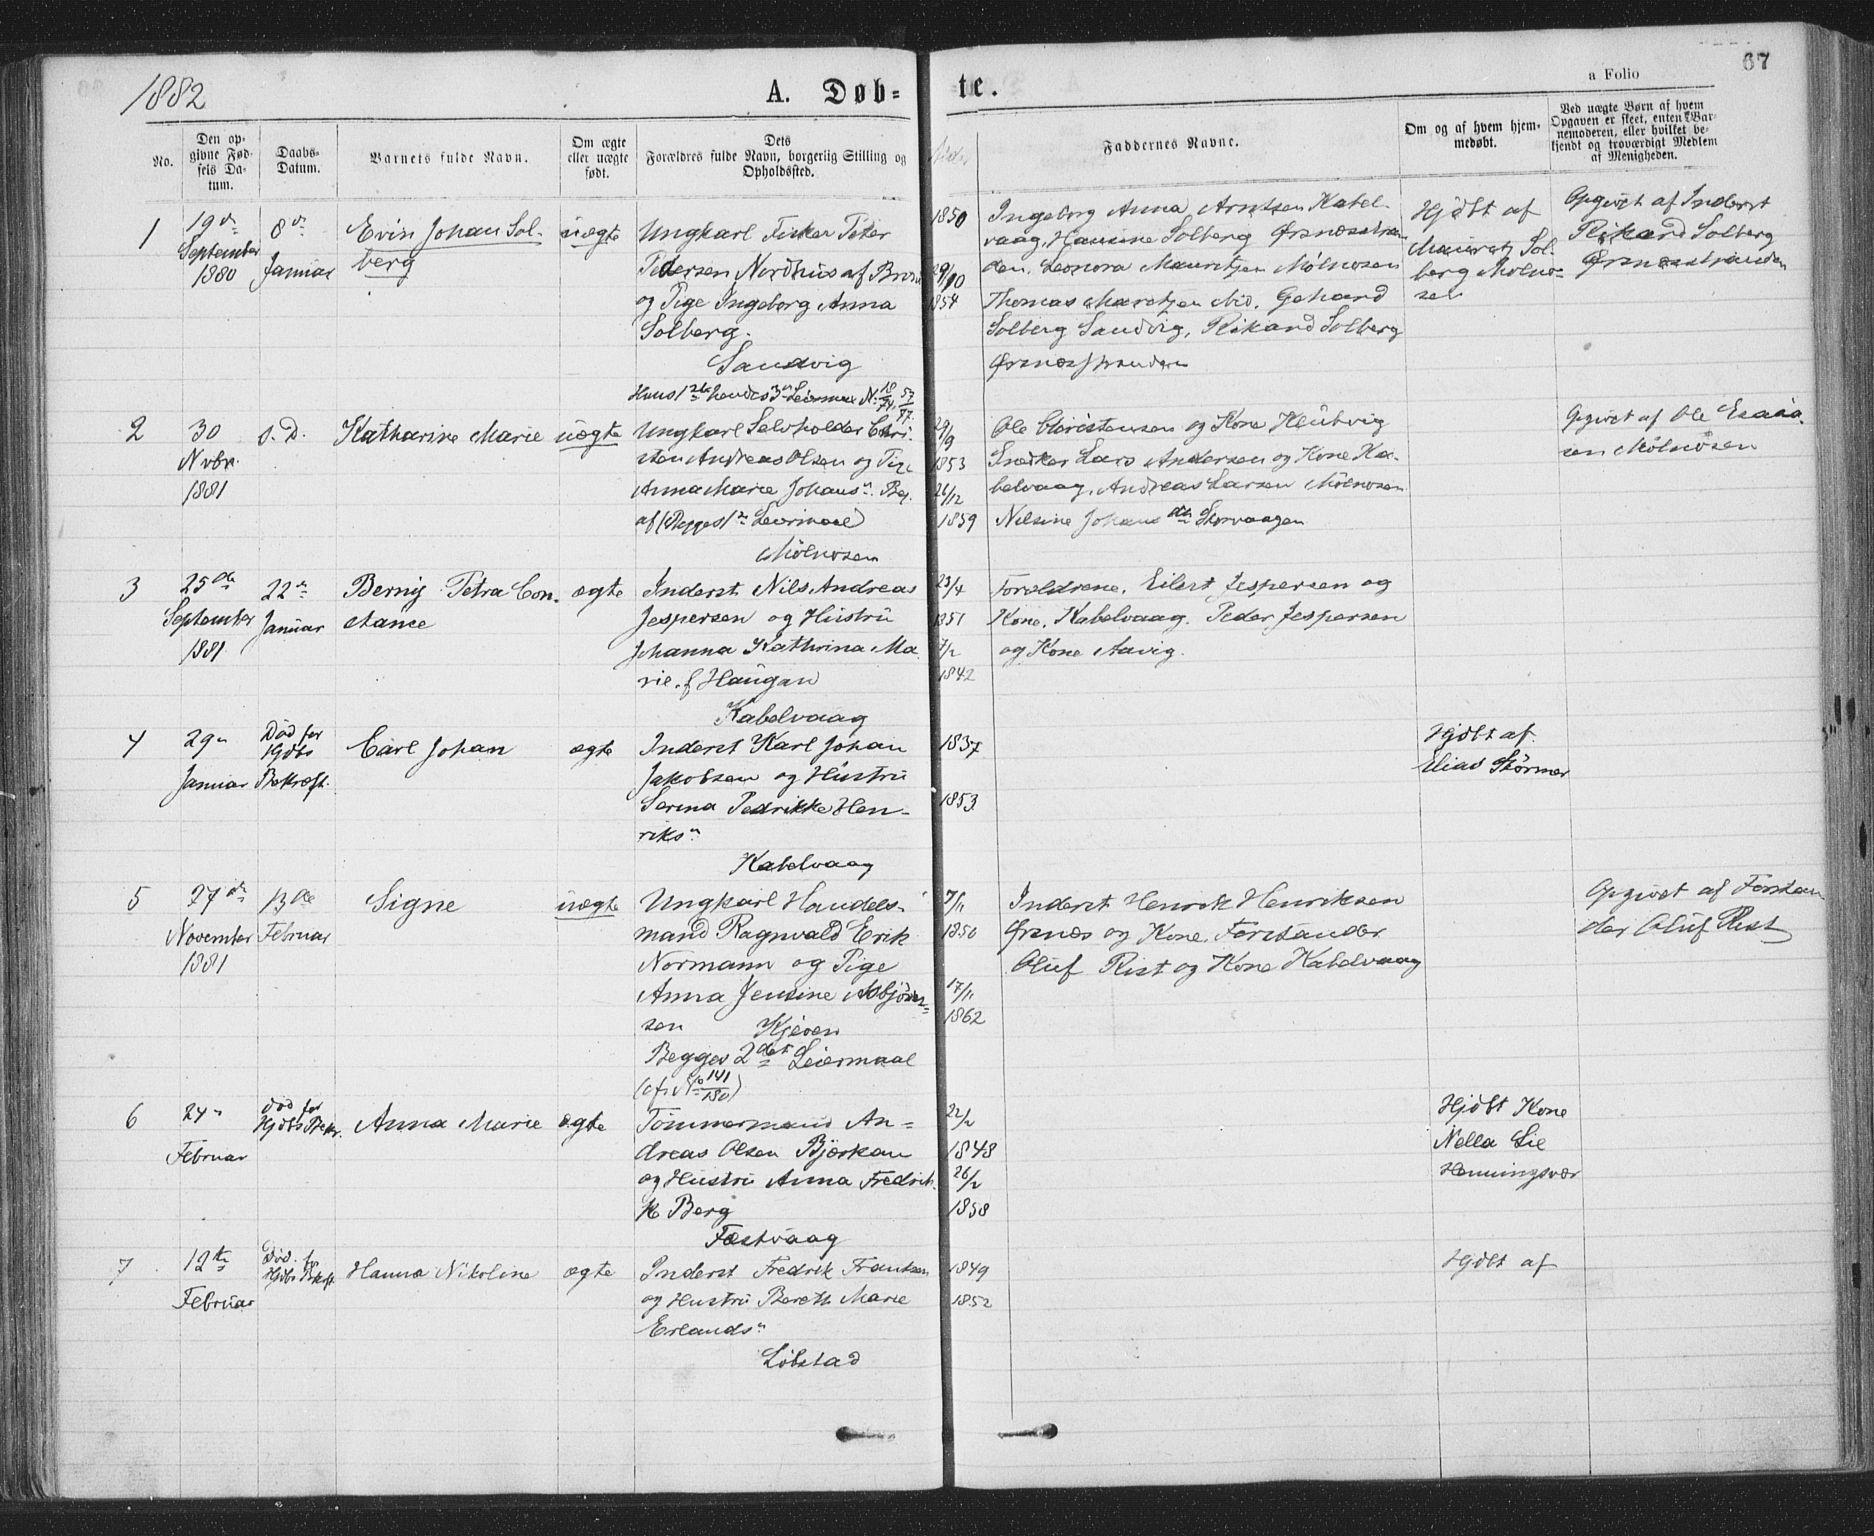 67
1882
A. Døb-
te.
a Folio
No.
Den op-
givne Fød-
sels Da-
tum.
Daabs-
Datum.
Barnets fulde Navn.
Om ægte
eller uægte
født.
Dets
Forældres fulde Navn, borgerlig Stilling og
Opholdssted.
Faddernes Navne.
Om og af hvem hjem-
medøbt.
Ved uægte Børn af hvem
Opgaven er skeet, enten Bar-
nemoderen, eller hvilket be-
kjendt og troværdigt Medlem
af Menigheden.
1
19de
September
1880
8de
Januar
Evin Johan Sol-
berg
uægte
Ungkarl Fisker Peter
Pedersen Nordhus af
og Pige Ingeborg Anna
Solberg.
Sandvig
Hans 1ste hendes 3die Leiermaal
1850
29/10
1854
Ingeborg Anna Arntsen Kabel-
vaag, Hansine Solberg Ørsnæsstran-
den, Leonora Mauritzen Mølnosen
Thomas Mauritzen ibid. Gehard
Solberg Sandvig, Rikard Solberg
Ørsnæsstranden
Hjdbt af
Mauritz Sol-
berg Molno-
sen
Opgivet af Inderst
Rikard Solberg
Ørsnæsstranden
2
30
Nvbr.
1881
s. D.
Katharine Marie
uægte
Ungkarl Selvholder Chri-
sten Andreas Olsen og Pige
Anna Marie Johansn.
af (Begges 1ste Leiermaal)
Mölnosen
29/9
1853
26/12
1859
Ole Christensen og Kone
Snedker Lars Andersen og Kone Ka-
belvaag, Andreas Larsen Mölnosen
Nilsine Johansdtr Storvaagen
Opgivet af Ole Esaia-
sen Mölnosen
3
25de
September
1881
22de
Januar
Bernij Petra Con-
stance
ægte
Inderst Nils Andreas
Jespersen og Hustru
Johanna Kathrina Ma-
rie. f Haugan
Kabelvaag
23/4
1851
7/2
1842
Forældrene, Eilert Jespersen og
Kone, Kabelvaag. Peder Jespersen
og Kone Aavig.
4
29de
Januar
Død før
Hjdbs
Bekræft.
Carl Johan
ægte
Inderst Karl Johan
Jakobsen og Hustru
Serina Pedrikke Hen-
riksn
Kabelvaag
1837
1853
Hjdbt af
Elias Størmer
5
27de
November
1881
13de
Februar
Signe
uægte
Ungkarl Handels-
mand Ragnvald Erik
Normann og Pige
Anna Jensine Asbjörn-
sen Kjeøen
Begges 2det Leiermaal
(cfr. No 141/180)
7/11
1850
17/11
1862
Inderst Henrik Henriksen
Ørsnæs og Kone, Forstander
Oluf Rist og Kone Kabelvaag
Opgivet af Forstan-
der Oluf Rist
6
24de
Februar
død før
Hjdbs Bekr.
Anna Marie
ægte
Tömmermand An-
dreas Olsen Bjørkan
og Hustru Anna Fredrik-
ke Berg
Fæstvaag
22/2
1848
26/2
1858
Hjdbt Kone
Nella Lie
Henningsvær
7
12te
Februar
Død før
Hjdbs Bekft.
Hanna Nikoline
ægte
Inderst Fredrik Frantsen
og Hustru Bereth Marie
Erlandsn
Löbstad
1849
1852
Hjdbt af